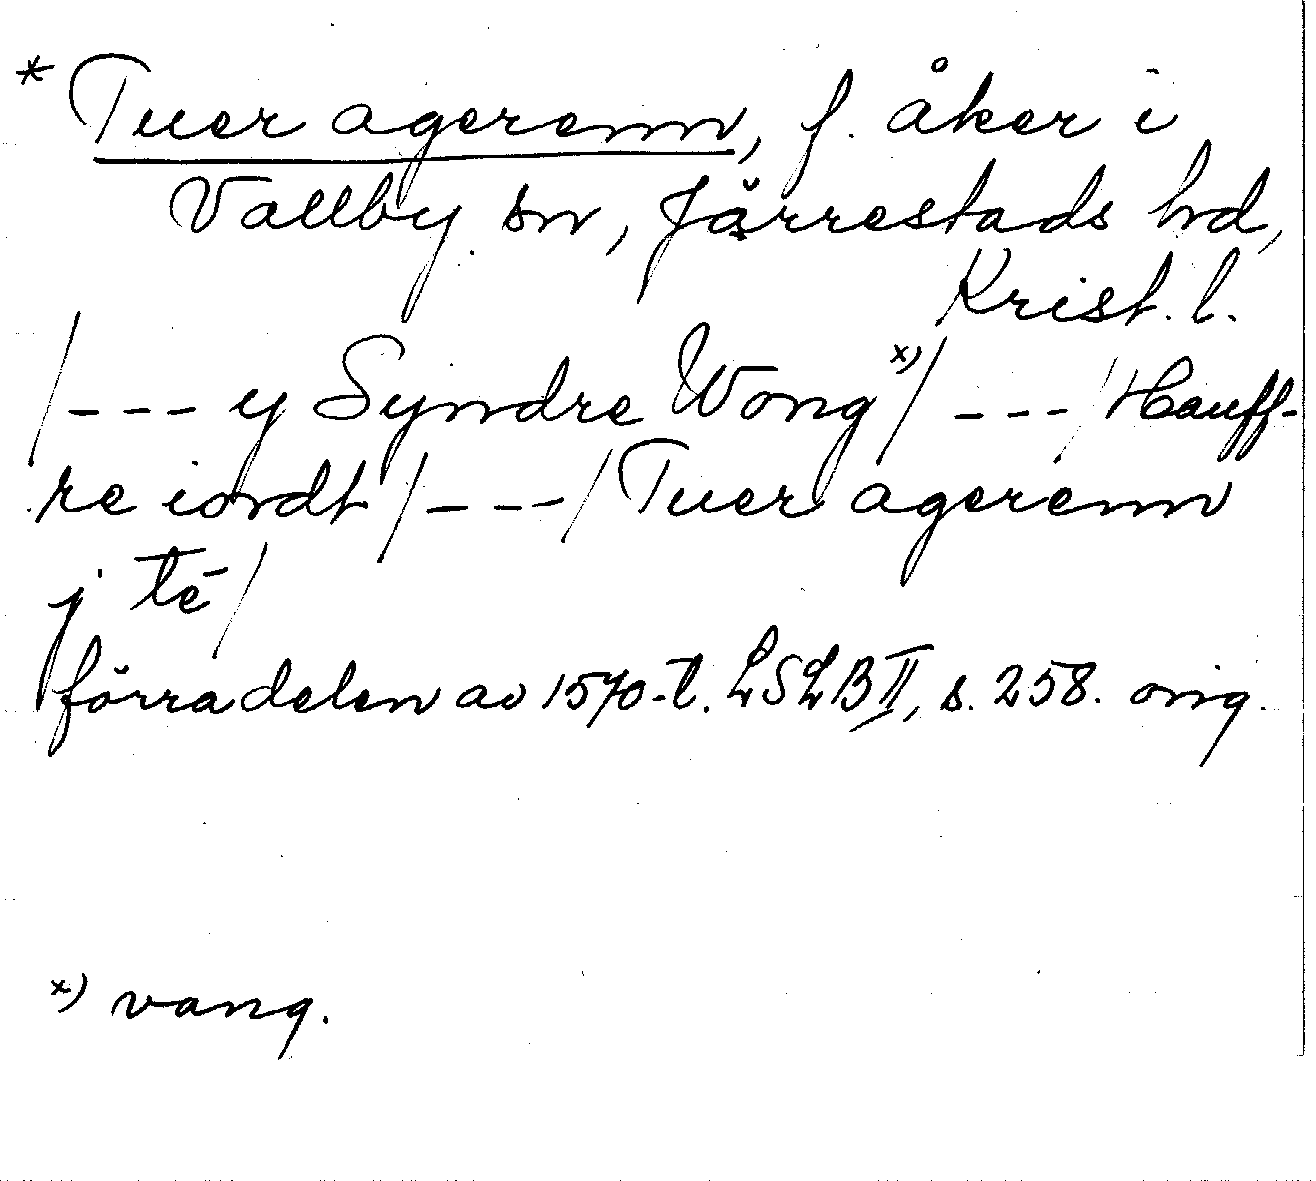 * Tuer agerenn, f. åker i
Vallby sn, Järrestads hd,
Krist. l.
/--- y Syndre Wong x)/ ---/ Hauff-
re iordt/---/ Tuer agerenn
j té/
förra delen av 1570-t. LSLB II, s. 258. orig.
x) vang.